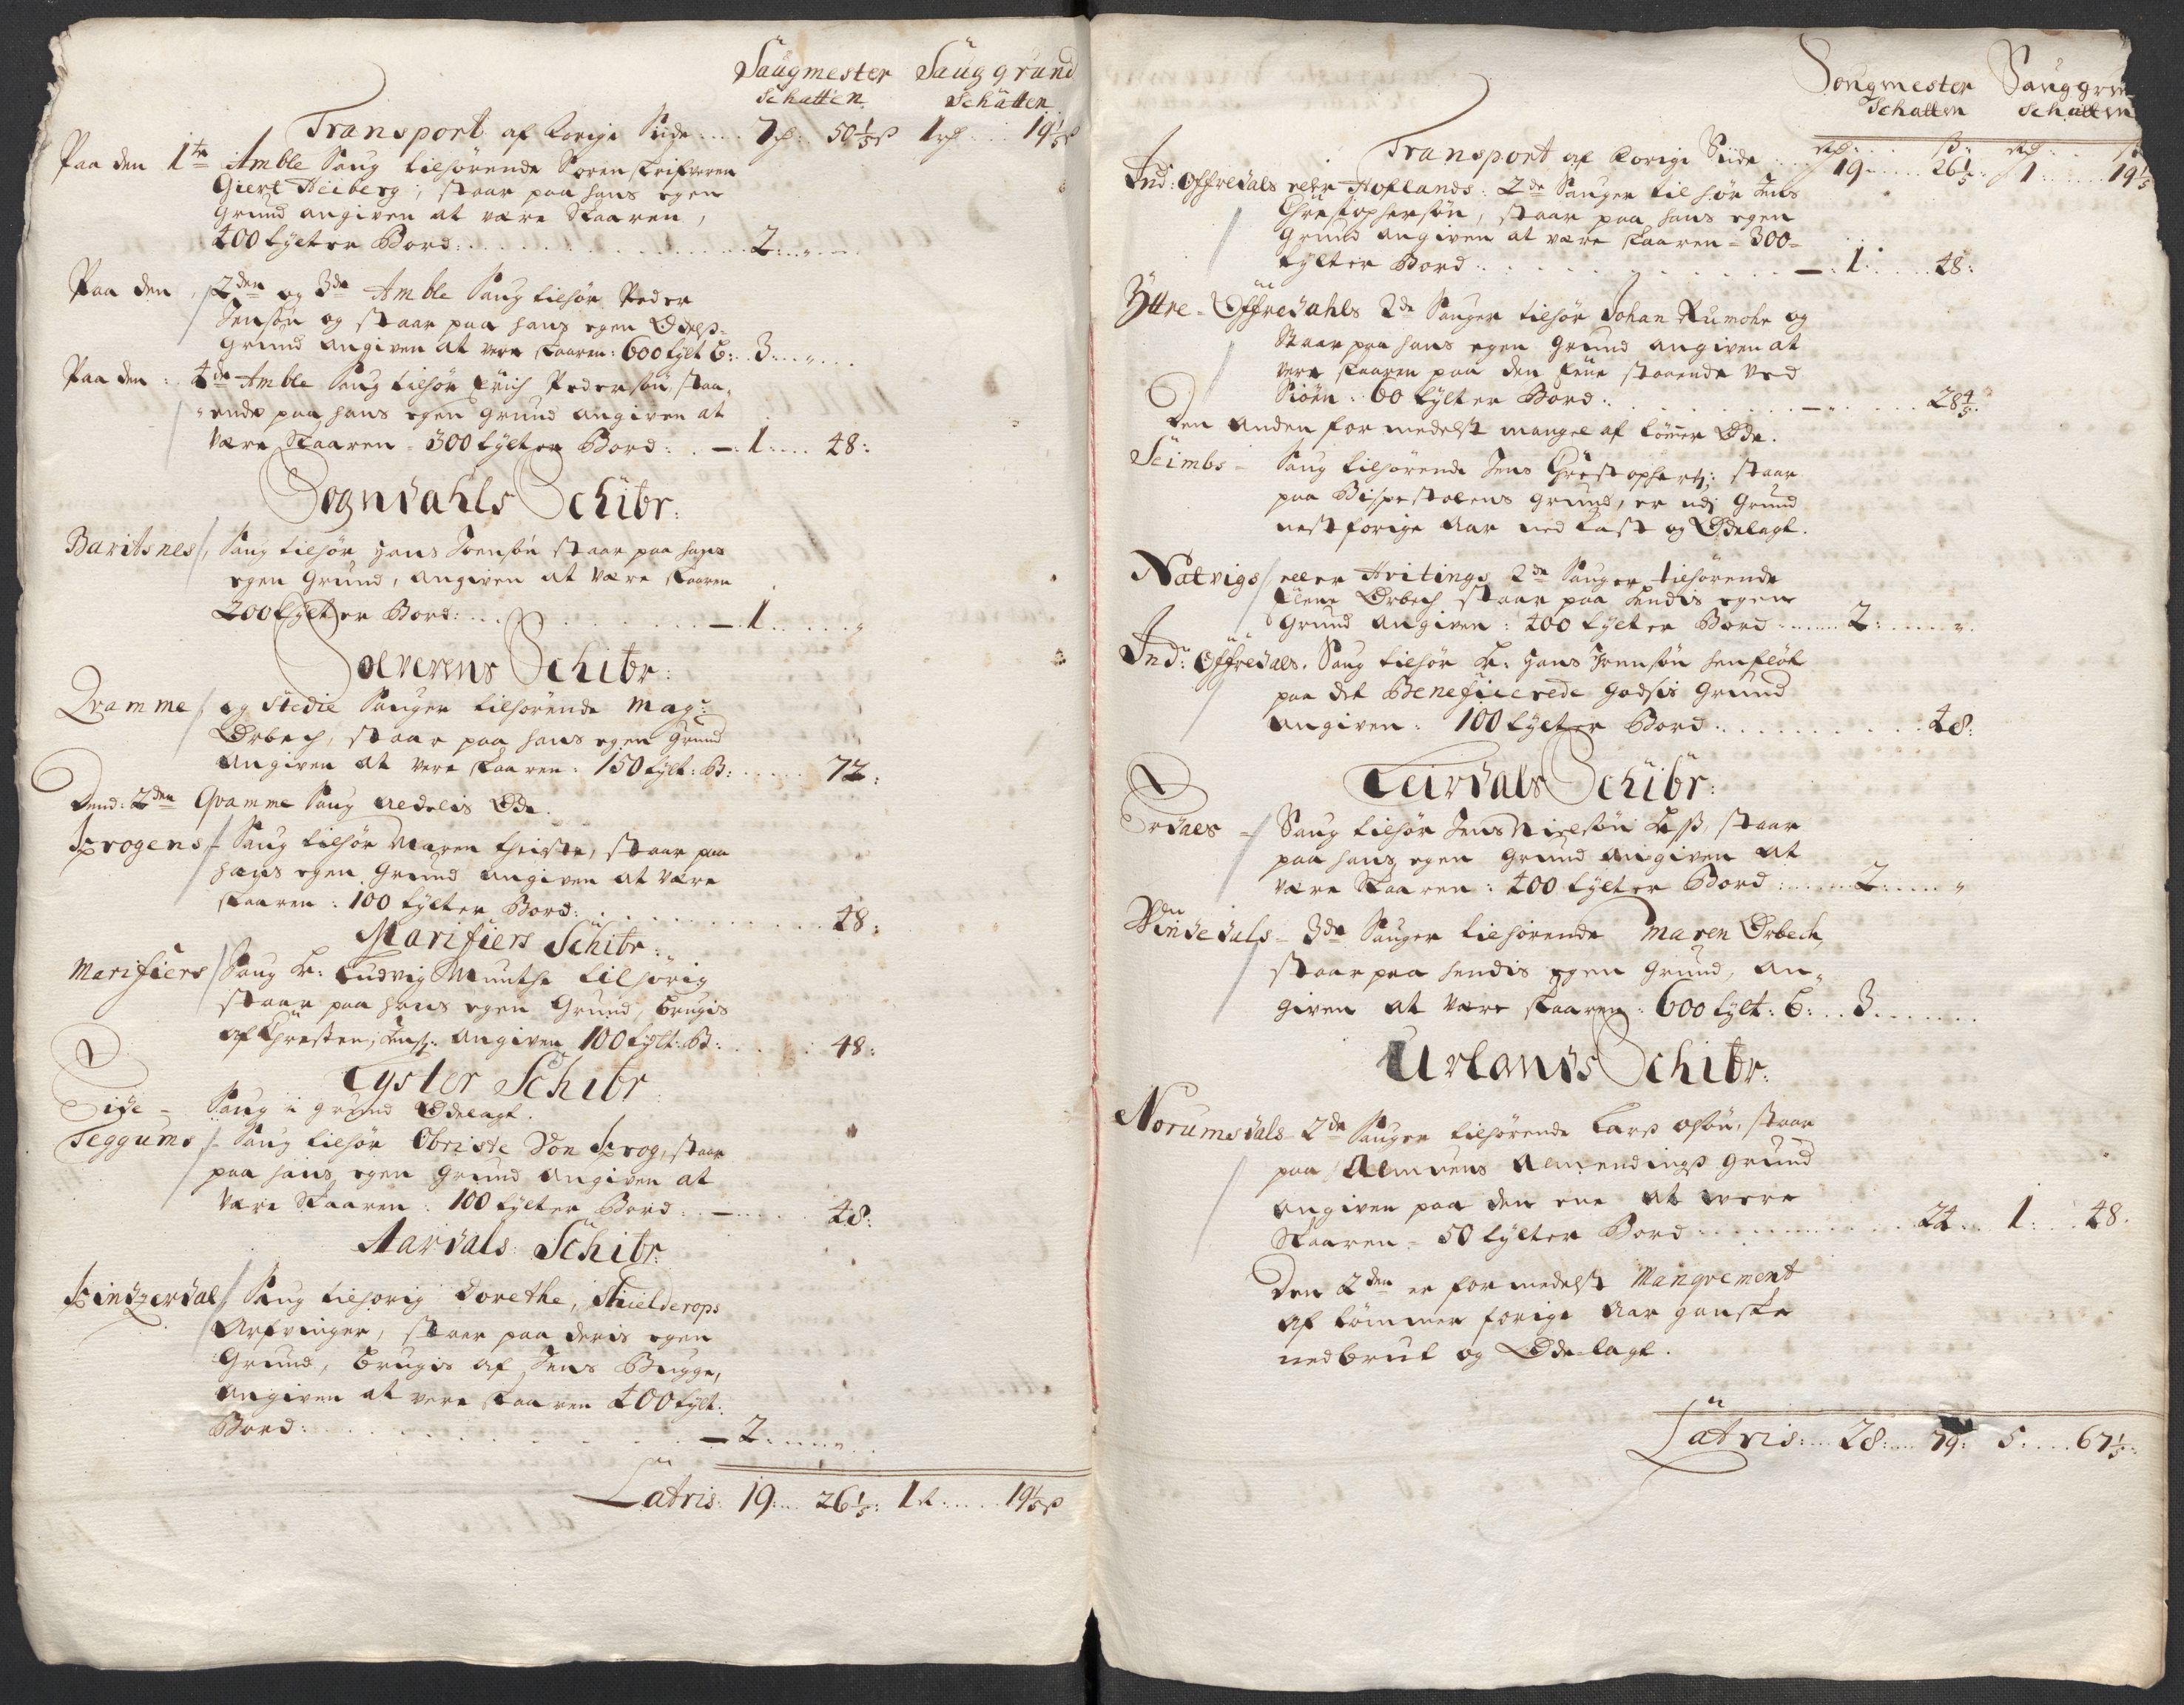 Saugmester Sauggrund
Schatten Schatten
Transport af forige Siide .... 7 rd: 50 1/5 ß 1 rd .. 19 1/5 ß
Paa den 1te Amble Saug tilhørende Sorenskrifveren
Giert Heiberg, staar paa hans egen
Grund angiven at være skaaren,
400 tylter Bord: .... 2: ..
Paa den 2den og 3de Amble Saug tilhør Peder
Jensøn og staar paa hans egen Odels-
grund angiven at vere skaaren: 600 tylt b: .. 3 ..
Paa den: 4de Amble Saug tilhør Erich Pedersøn, staa-
ende paa hans egen grund angiven at
være Skaaren = 300 tylter Bord: . — 1: ... 48:
Sogndahls Schibr:
Baritsnes / Saug tilhør Hans Joensøn staar paa hans
egen Grund, angiven at være skaaren
200 tylter Bord: .... — 1 ....
Solverens Schibr:
Qvamme / og Stedie Sauger tilhørende Mag:
Ørbech, staar paa hans egen Grund
angiven at vere skaaren: 150 tylt: B: .... 72:
Dend: 2den Qvamme Saug aldelis Øde.
Krogens / Saug tilhør Maren Theiste, staar paa
hans egen Grund angiven at være
skaaren: 100 tylter Bord: .... 48:
Marifiers Schibr:
Marifiers / Saug Hr: Ludvig Munthe tilhørig
staar paa hans egen Grund, brugis
af Christen Jens: angiven 100 tylt: B: .... 48:
Lyster Schibr
Eide = Saug i grund Ødelagt.
Teggums / Saug tilhør Obriste Von Krog, staar
paa hans egen Grund angiven at
være Skaaren: 100 tylter Bord: — .... 48:
Aardals Schibr:
Kindzerdal / Saug tilhørig Dorethe Skielderops
Arfvinger, staar paa deris egen
Grund, brugis af Jens Bugge,
angiven at vere skaaren 400 tylt:
Bord: .... — 2: ....
Latris: 19: ... 26 1/5: 1 rd: .... 19 1/5 ß
Sougmester Sauggrun
Schatten Schatten
rd: ß: rd: ß
Transport af forige Siide .... 19 .... 26 1/5: 1: .... 19 1/5
Ind: Offredals eller Hoflands: 2de Sauger tilhør Jens
Christophersøn, staar paa hans egen
Grund angiven at være skaaren = 300 =
tylter Bord .... — 1: .... 48:
Yttre = Offredahls 2de Sauger tilhør Johan Rumohr og
Staar paa hans egen Grund angiven at
vere skaaren paa den Eene staaende ved
Siøen: 60 tylter Bord: .... — .... 28 4/5:
Den anden formedelst mangel af tømer Øde.
Seimbs = Saug tilhørende Jens Christophers: staar
paa Bispestolens grund, er udj Grund
nest forige Aar nedkast og Ødelagt.
Natvigs / eller Hvitings 2de Sauger tilhørende
Elene Ørbech staar paa hendis egen
Grund angiven: 400 tylter Bord .... 2: ....
Ind: Offredals. Saug tilhør Hr: Hans Joensøn Henfløt
paa det Beneficerede Godsis Grund
angiven: 100 tylter Bord: .... 48:
Leirdals Schibr:
Erdals = / Saug tilhør Jens Nielsøn, staar
paa hans egen Grund angiven at
være Skaaren: 400 tylter Bord: .... 2: ....
Vindedals = 3de Sauger tilhørende Maren Ørbech,
staar paa hendis egen Grund, an-
given at være skaaren: 600 tylt: b: .. 3 ....
Urlands Schibr:
Norumsdals = 2de Sauger tilhørende Lars Olsøn, staar
paa Almuens Almendings Grund
angiven paa den ene at were
Skaaren = 50 tylter Bord .... 24 ... 1: ... 48.
Den 2den er formedelst Manqvement
af tømmer forige Aar ganske
nedbrut og Øde-lagt.
Latris: ... 28: ... 79: 5 .... 67 1/5: